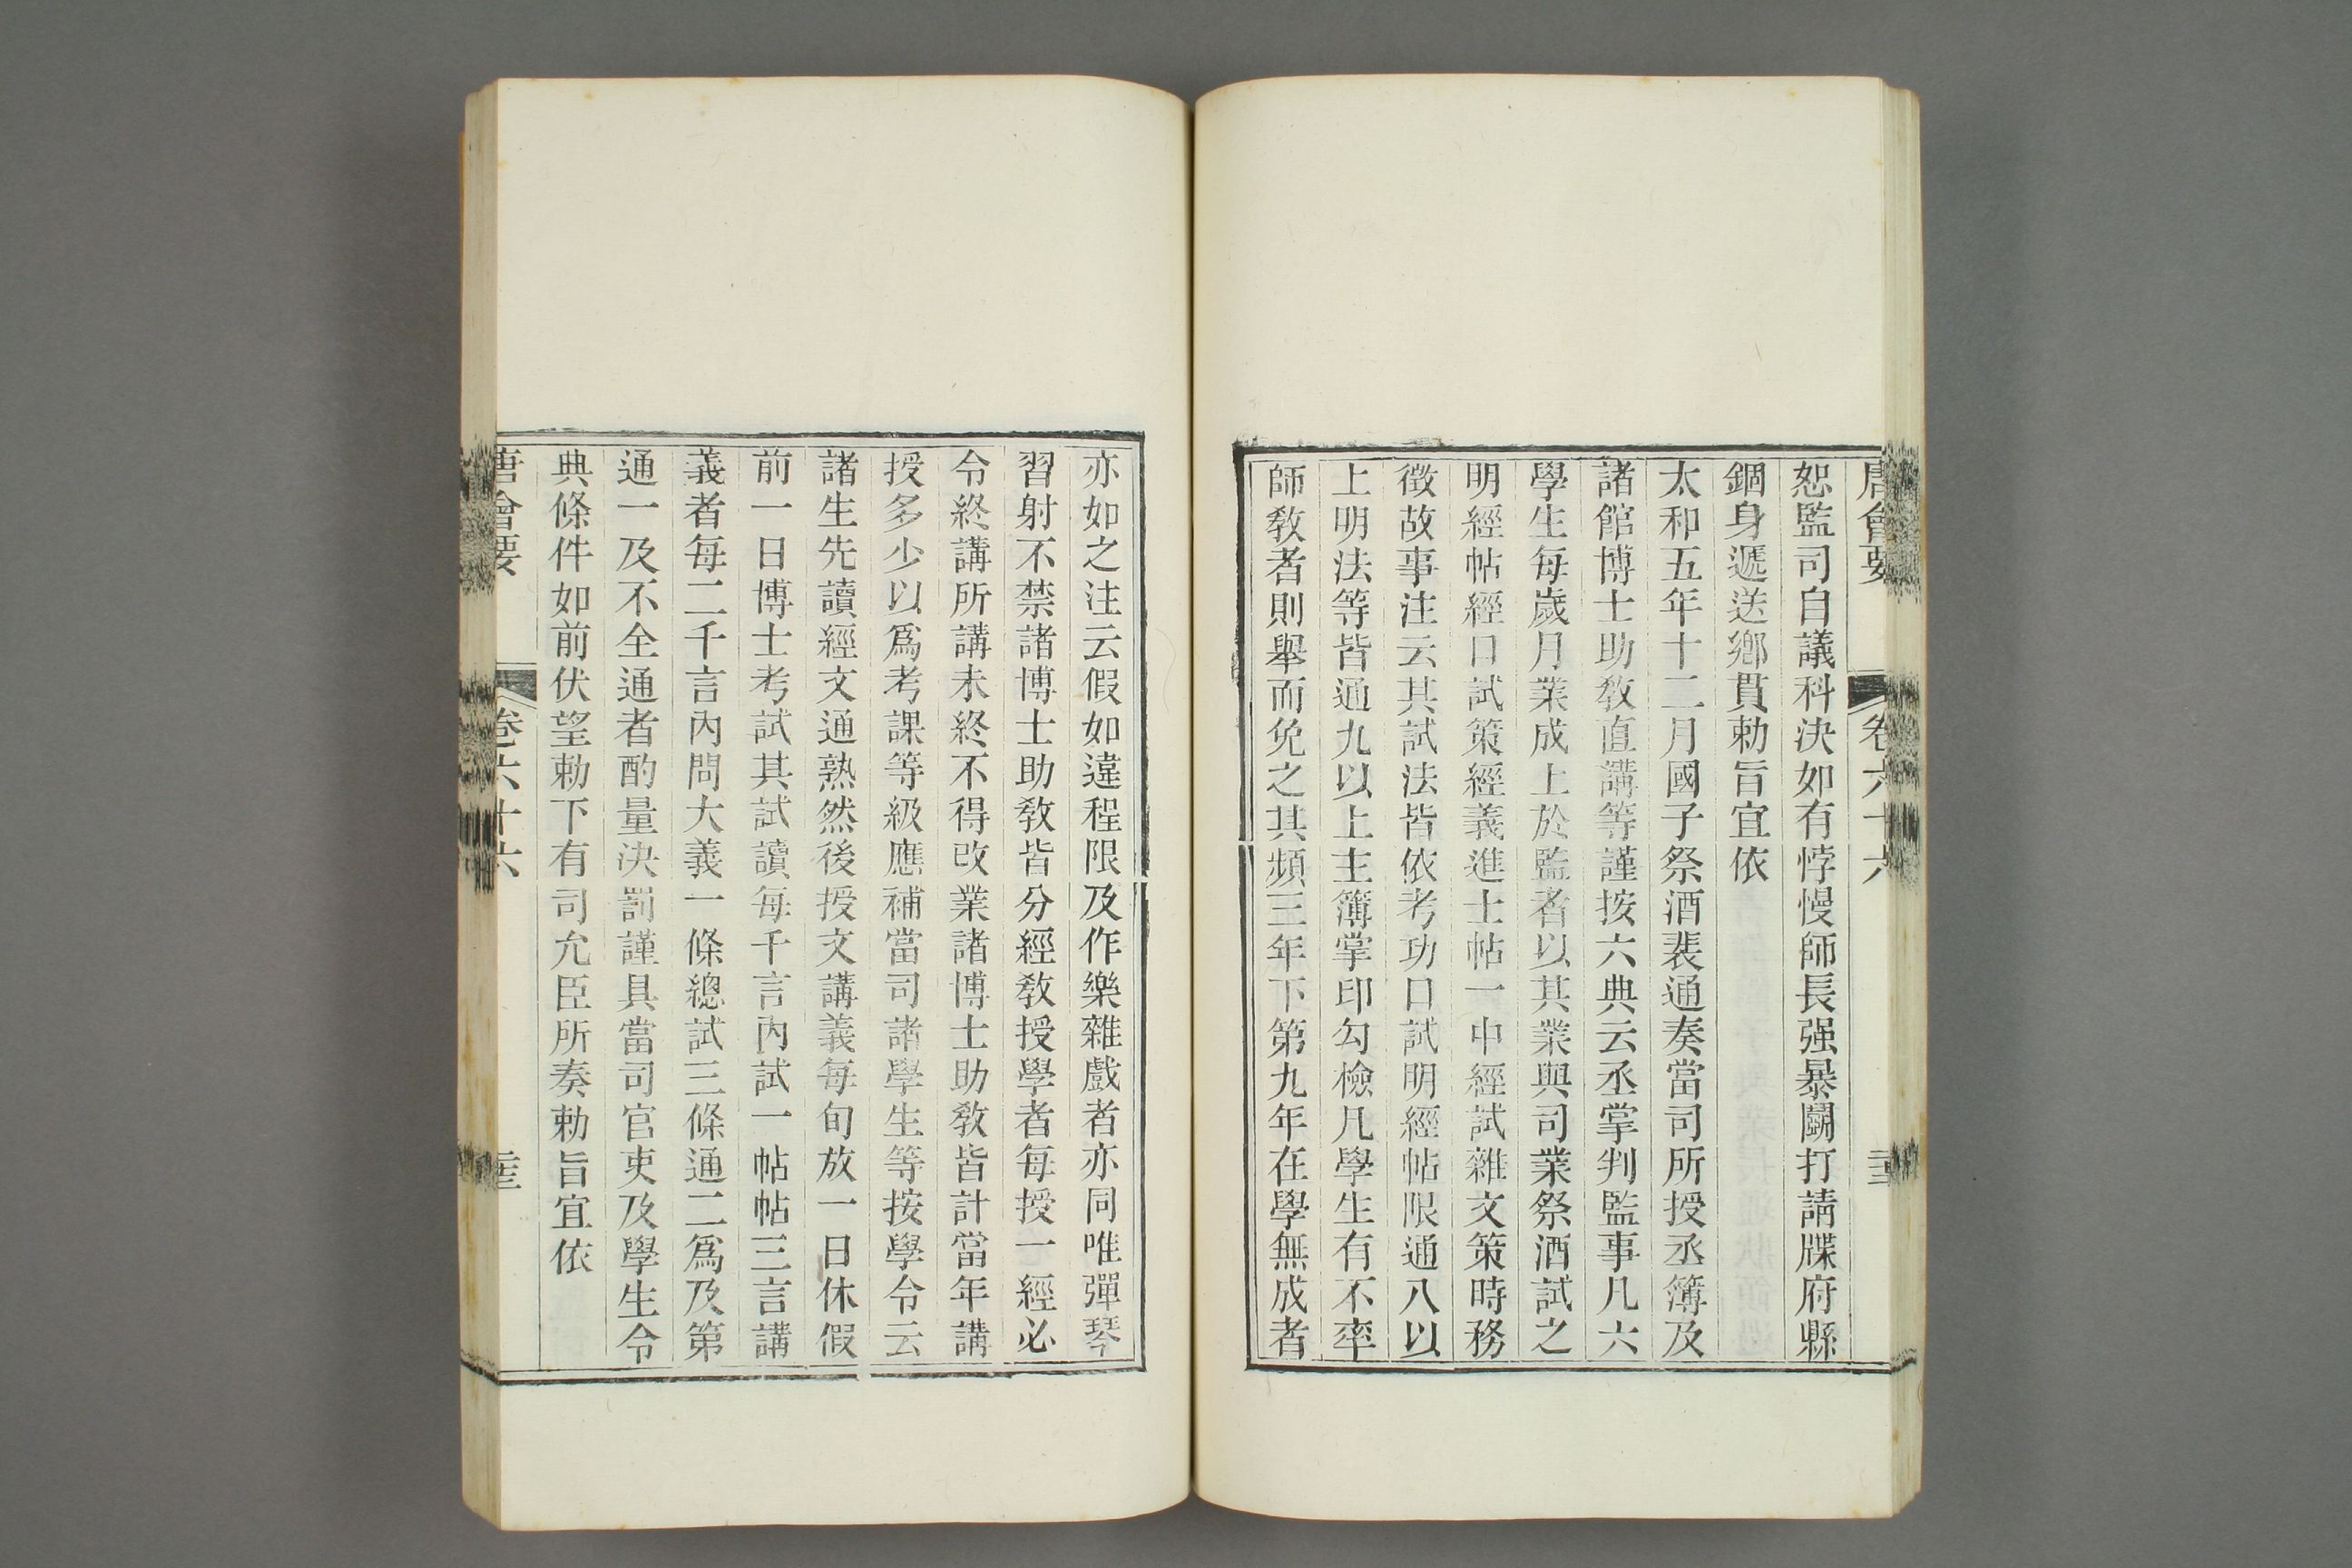 唐會要 卷六十六
恕監司自議科決如有悖慢師長强暴鬭打請牒府縣
錮身遞送鄉貫勅旨宜依
太和五年十二月國子祭酒裴通奏當司所授丞簿及
諸館博士助敎直講等謹按六典云丞掌判監事凡六
學生每歲月業成上於監者以其業與司業祭酒試之
明經帖經口試策經義進士帖一中經試雜文策時務
徵故事注云其試法皆依考功口試明經帖限通八以
上明法等皆通九以上主簿掌印勾檢凡學生有不率
師敎者則舉而免之其頻三年下第九年在學無成者
亦如之注云假如違程限及作樂雜戲者亦同唯彈琴
習射不禁諸博士助敎皆分經敎授學者每授一經必
令終講所講未終不得改業諸博士助敎皆計當年講
授多少以爲考課等級應補當司諸學生等按學令云
諸生先讀經文通熟然後授文講義每旬放一日休假
前一日博士考試其試讀每千言內試一帖帖三言講
義者每二千言內問大義一條總試三條通二爲及第
通一及不全通者酌量決罰謹具當司官吏及學生令
典條件如前伏望勅下有司允臣所奏勅旨宜依
唐會要 卷六十六